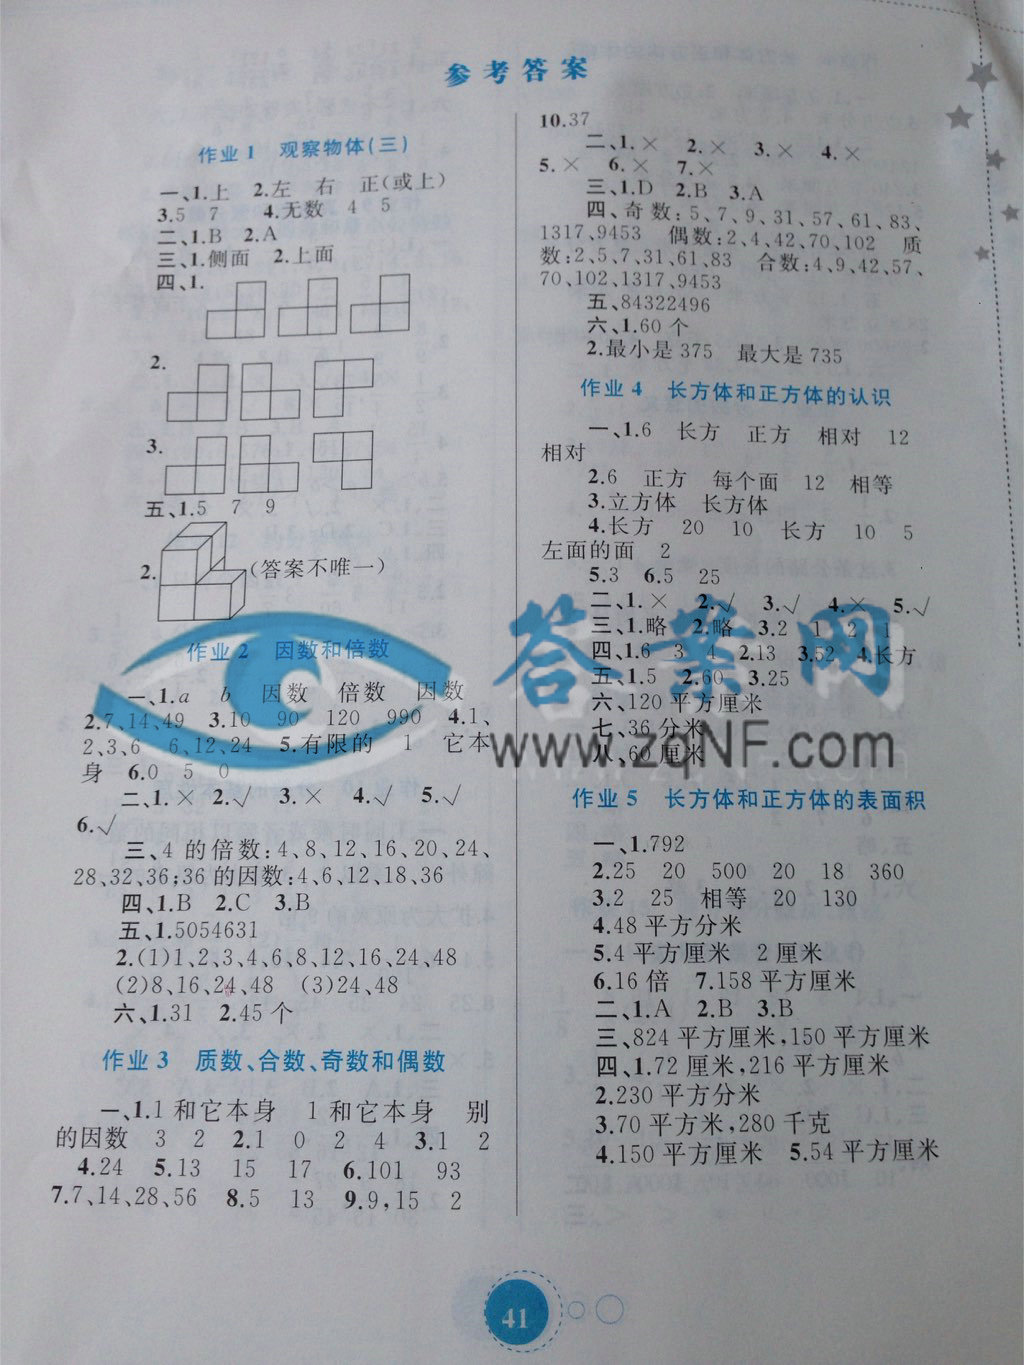 参考答案
作业1 观察物体(三)
一、1.上 2.左 右 正(或上)
3.5 7 4.无数 4 5
二、1.B 2.A
三、1.侧面 2.上面
四、1.
2.
3.
五、1.5 7 9
2. (答案不唯一)
作业2 因数和倍数
一、1.a b 因数 倍数 因数
2.7,14,49 3.10 90 120 990 4.1、
2、3、6 6、12、24 5.有限的 1 它本
身 6.0 5 0
二、1.× 2.√ 3.× 4.√ 5.√
6.√
三、4的倍数:4、8、12、16、20、24、
28、32、36;36的因数:4、6、12、18、36
四、1.B 2.C 3.B
五、1.5054631
2.(1)1、2、3、4、6、8、12、16、24、48
(2)8、16、24、48 (3)24、48
六、1.31 2.45个
作业3 质数、合数、奇数和偶数
一、1.1和它本身 1和它本身 别
的因数 3 2 2.1 0 2 4 3.1 2
4.24 5.13 15 17 6.101 93
7.7、14、28、56 8.5 13 9.9,15 2
10.37
二、1.× 2.× 3.× 4.×
5.× 6.× 7.×
三、1.D 2.B 3.A
四、奇数:5、7、9、31、57、61、83、
1317、9453 偶数:2、4、42、70、102 质
数:2、5、7、31、61、83 合数:4、9、42、57、
70、102、1317、9453
五、84322496
六、1.60个
2.最小是375 最大是735
作业4 长方体和正方体的认识
一、1.6 长方 正方 相对 12
相对
2.6 正方 每个面 12 相等
3.立方体 长方体
4.长方 20 10 长方 10 5
左面的面 2
5.3 6.5 25
二、1.× 2.√ 3.√ 4.× 5.√
三、1.略 2.略 3.2 1 2 1
四、1.6 3 4 2.13 3.52 4.长方
五、1.5 2.60 3.25
六、120平方厘米
七、36分米
从、60厘米
答案网
www.zqNF.com
作业5 长方体和正方体的表面积
一、1.792
2.25 20 500 20 18 360
3.2 25 相等 20 130
4.48平方分米
5.4平方厘米 2厘米
6.16倍 7.158平方厘米
二、1.A 2.B 3.B
三、824平方厘米,150平方厘米
四、1.72厘米,216平方厘米
2.230平方分米
3.70平方米,280千克
4.150平方厘米 5.54平方厘米
41